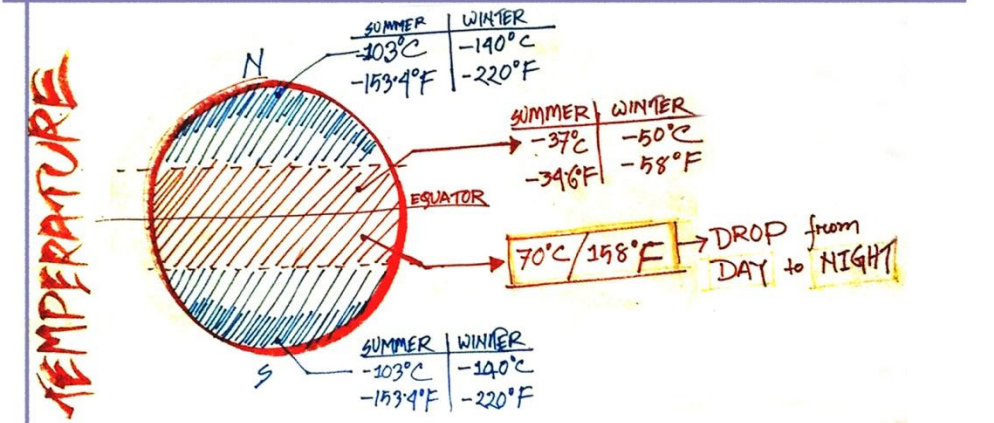 TEMPERATURE
N
SUMMER | WINTER
-103°C | -140°C
-153.4°F | -220°F
SUMMER | WINTER
-37°C | -50°C
-34.6°F | -58°F
EQUATOR
70°C/158°F → DROP from
DAY to NIGHT
S
SUMMER | WINTER
-103°C | -140°C
-153.4°F | -220°F